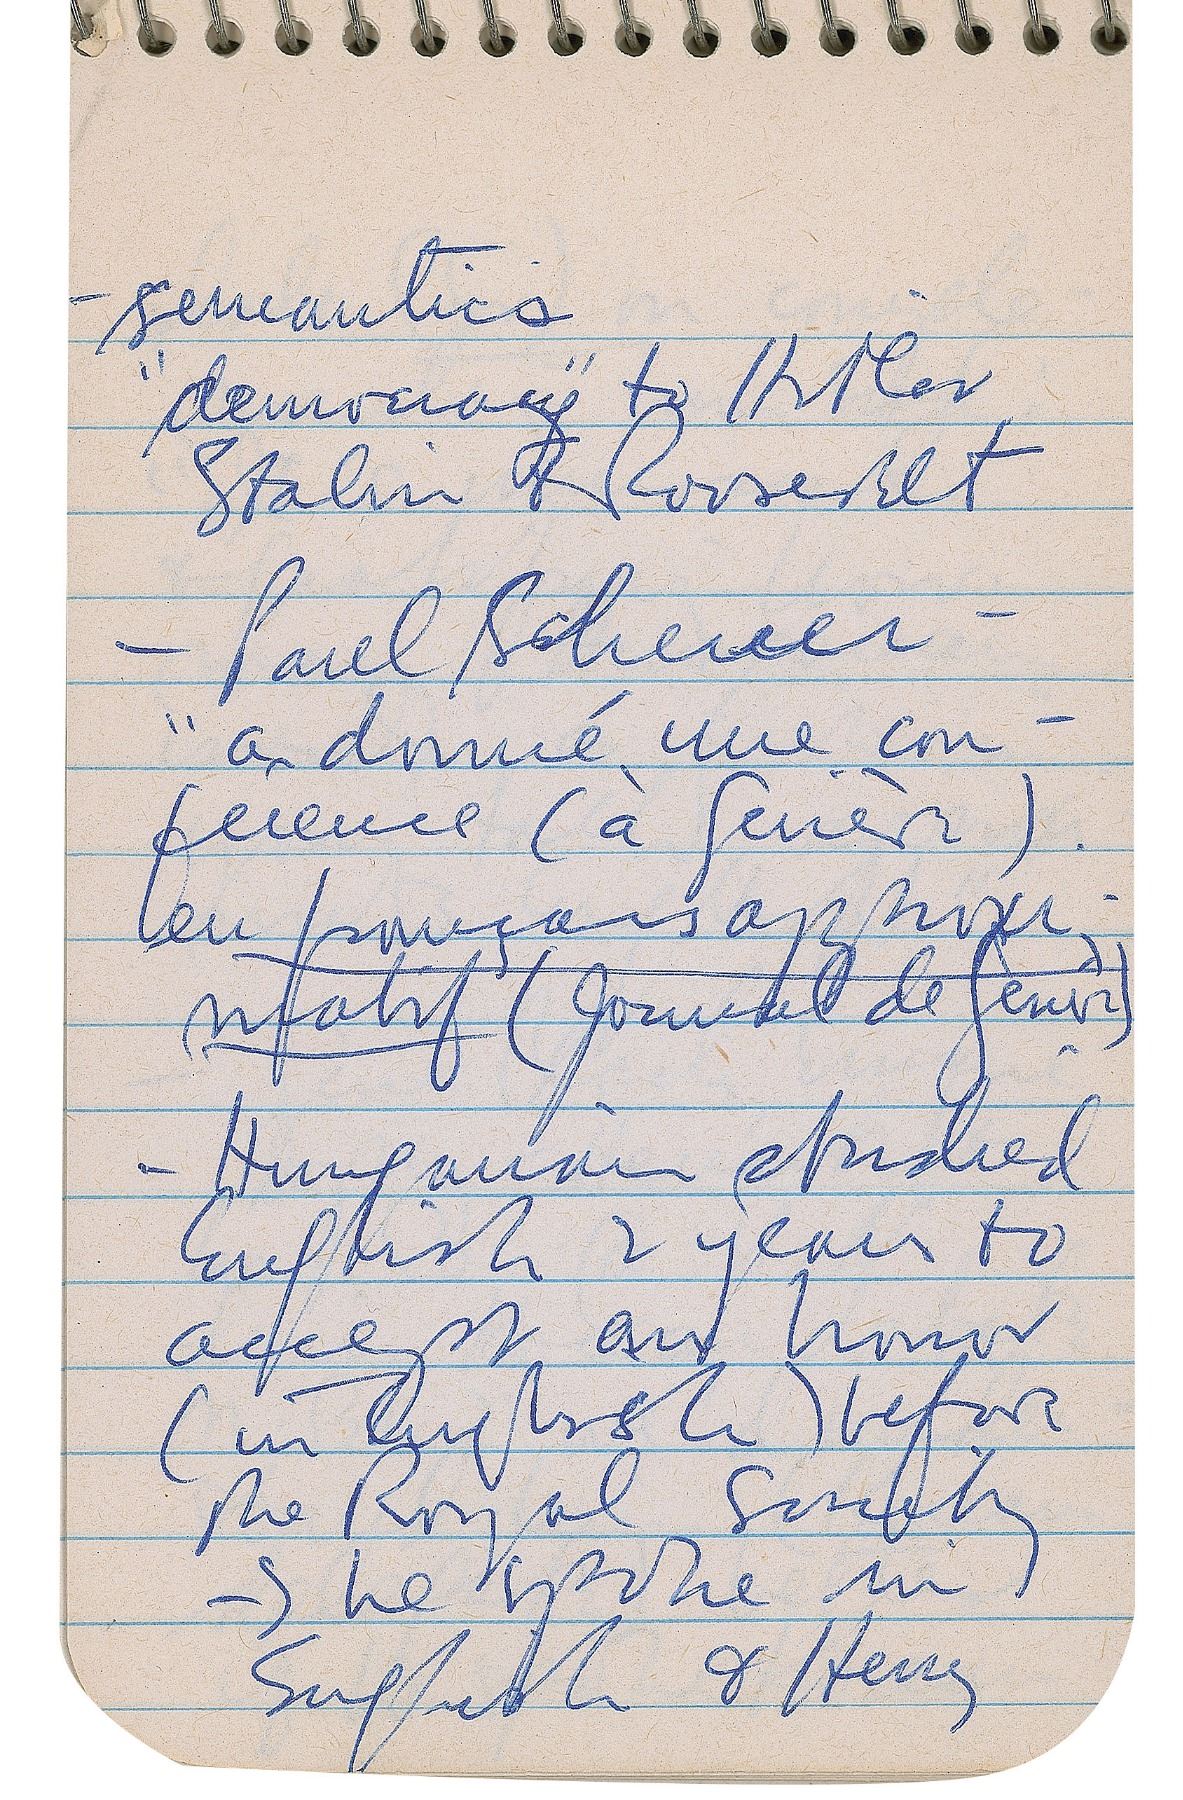 - semantics
"democracy" to Hitler
Stalin & Roosevelt
- Paul Scherrer -
"a donné une con-
ference (à Genève).
en français approxi-
matif (Journal de Genève)
- Hungarian studied
English 2 years to
accept an honor
(in English) before
the Royal Society
→ he spoke in
English & Henry